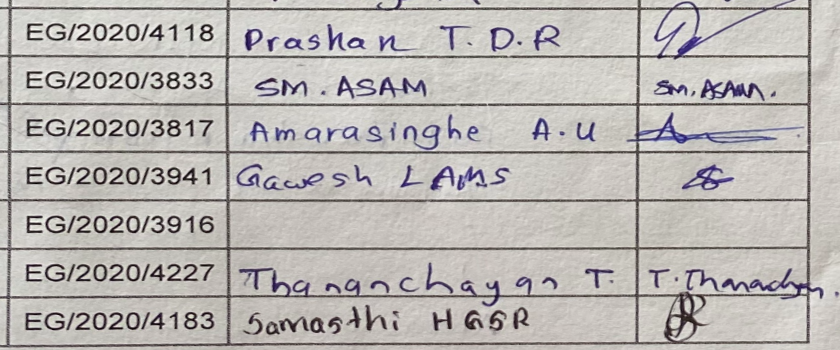 EG/2020/4118 Prashan T.D.R
EG/2020/3833 SM.ASAM SM.ASAM.
EG/2020/3817 Amarasinghe A.U
EG/2020/3941 Gawesh LAMS
EG/2020/3916
EG/2020/4227 Thananchayan T. T.Thanachyn.
EG/2020/4183 Samasthi HGSR